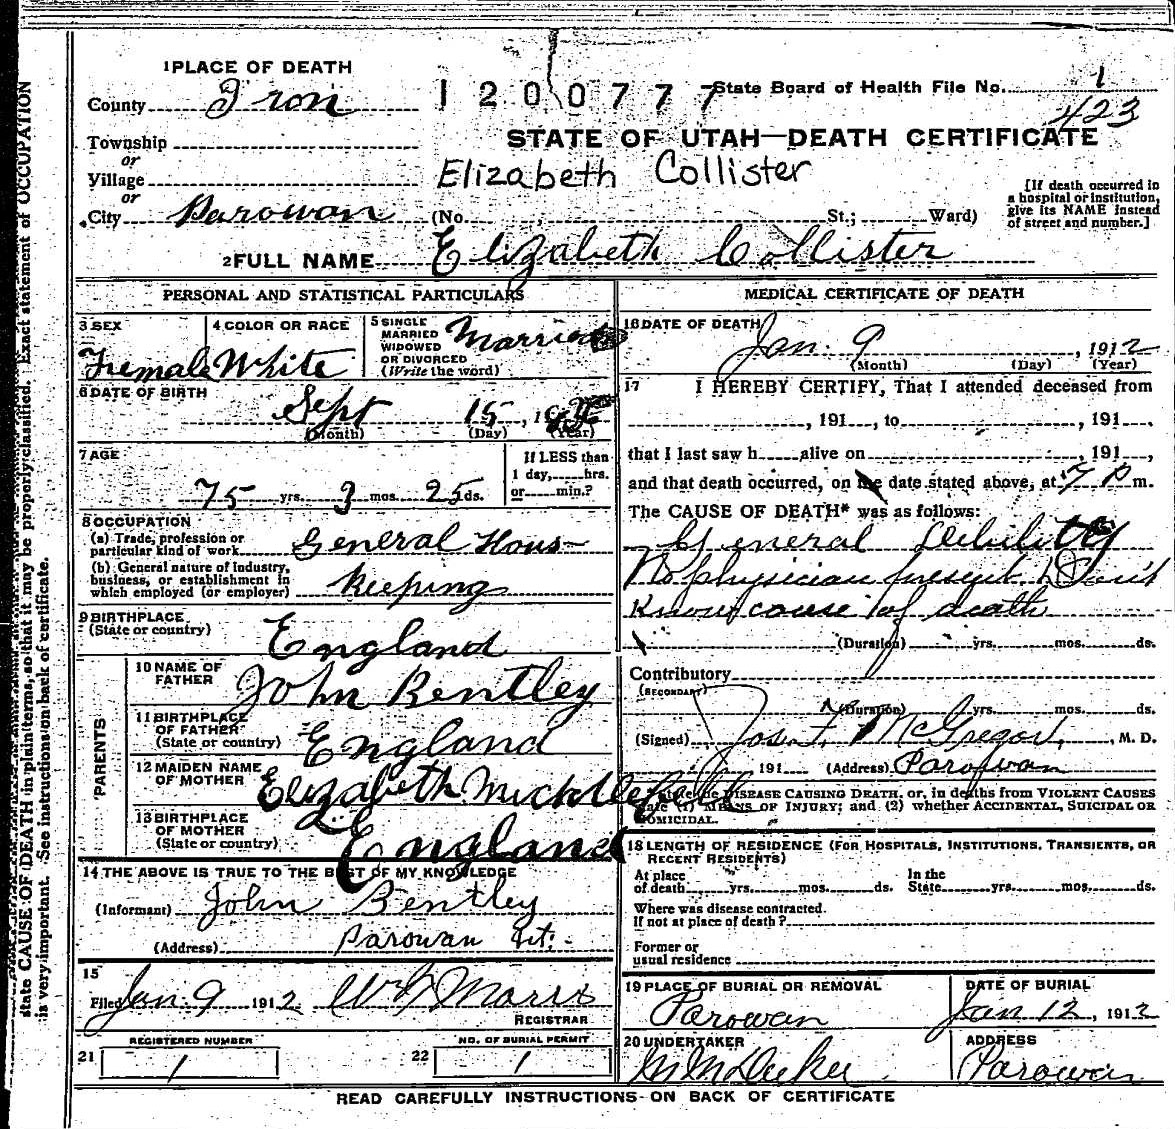 1 PLACE OF DEATH
County Iron
1200777
State Board of Health File No. 1
423
Township
or
Village
or
City Parowan
STATE OF UTAH—DEATH CERTIFICATE
Elizabeth Collister
(No. , St.; Ward)
[If death occurred in a hospital or institution, give its NAME instead of street and number.]
2 FULL NAME Elizabeth Collister
PERSONAL AND STATISTICAL PARTICULARS
3 SEX Female
4 COLOR OR RACE White
5 SINGLE MARRIED WIDOWED OR DIVORCED (Write the word) Married
6 DATE OF BIRTH Sept 15, 1
(Month) (Day) (Year)
7 AGE
75 yrs. 3 mos. 25 ds.
If LESS than 1 day, hrs. or min.?
8 OCCUPATION
(a) Trade, profession or particular kind of work General Hous-
(b) General nature of industry, business, or establishment in which employed (or employer) keeping
9 BIRTHPLACE (State or country) England
PARENTS
10 NAME OF FATHER John Bentley
11 BIRTHPLACE OF FATHER (State or country) England
12 MAIDEN NAME OF MOTHER Elizabeth
13 BIRTHPLACE OF MOTHER (State or country) England
14 THE ABOVE IS TRUE TO THE BEST OF MY KNOWLEDGE
(Informant) John Bentley
(Address) Parowan Ut.
15
Filed Jan. 9 1912
REGISTRAR
21 REGISTERED NUMBER 1
22 NO. OF BURIAL PERMIT 1
MEDICAL CERTIFICATE OF DEATH
16 DATE OF DEATH
Jan. 9, 1912
(Month) (Day) (Year)
17 I HEREBY CERTIFY, That I attended deceased from
, 191 , to , 191 .
that I last saw h alive on , 191 ,
and that death occurred, on the date stated above, at 7 P m.
The CAUSE OF DEATH* was as follows:
General Debility
No physician present Don't
Know cause of death
(Duration) yrs. mos. ds.
Contributory
(SECONDARY)
(Duration) yrs. mos. ds.
(Signed) Jos. F. McGregor, M. D.
191 (Address) Parowan
State the DISEASE CAUSING DEATH, or, in deaths from VIOLENT CAUSES
state (1) MEANS OF INJURY; and (2) whether ACCIDENTAL, SUICIDAL OR
HOMICIDAL.
18 LENGTH OF RESIDENCE (FOR HOSPITALS, INSTITUTIONS, TRANSIENTS, OR RECENT RESIDENTS)
At place of death yrs. mos. ds. In the State yrs. mos. ds.
Where was disease contracted.
If not at place of death?
Former or
usual residence
19 PLACE OF BURIAL OR REMOVAL Parowan
DATE OF BURIAL Jan 12, 1912
20 UNDERTAKER
ADDRESS Parowan
READ CAREFULLY INSTRUCTIONS ON BACK OF CERTIFICATE
state CAUSE OF DEATH in plain terms, so that it may be properly classified. Exact statement of OCCUPATION
is very important. See instructions on back of certificate.